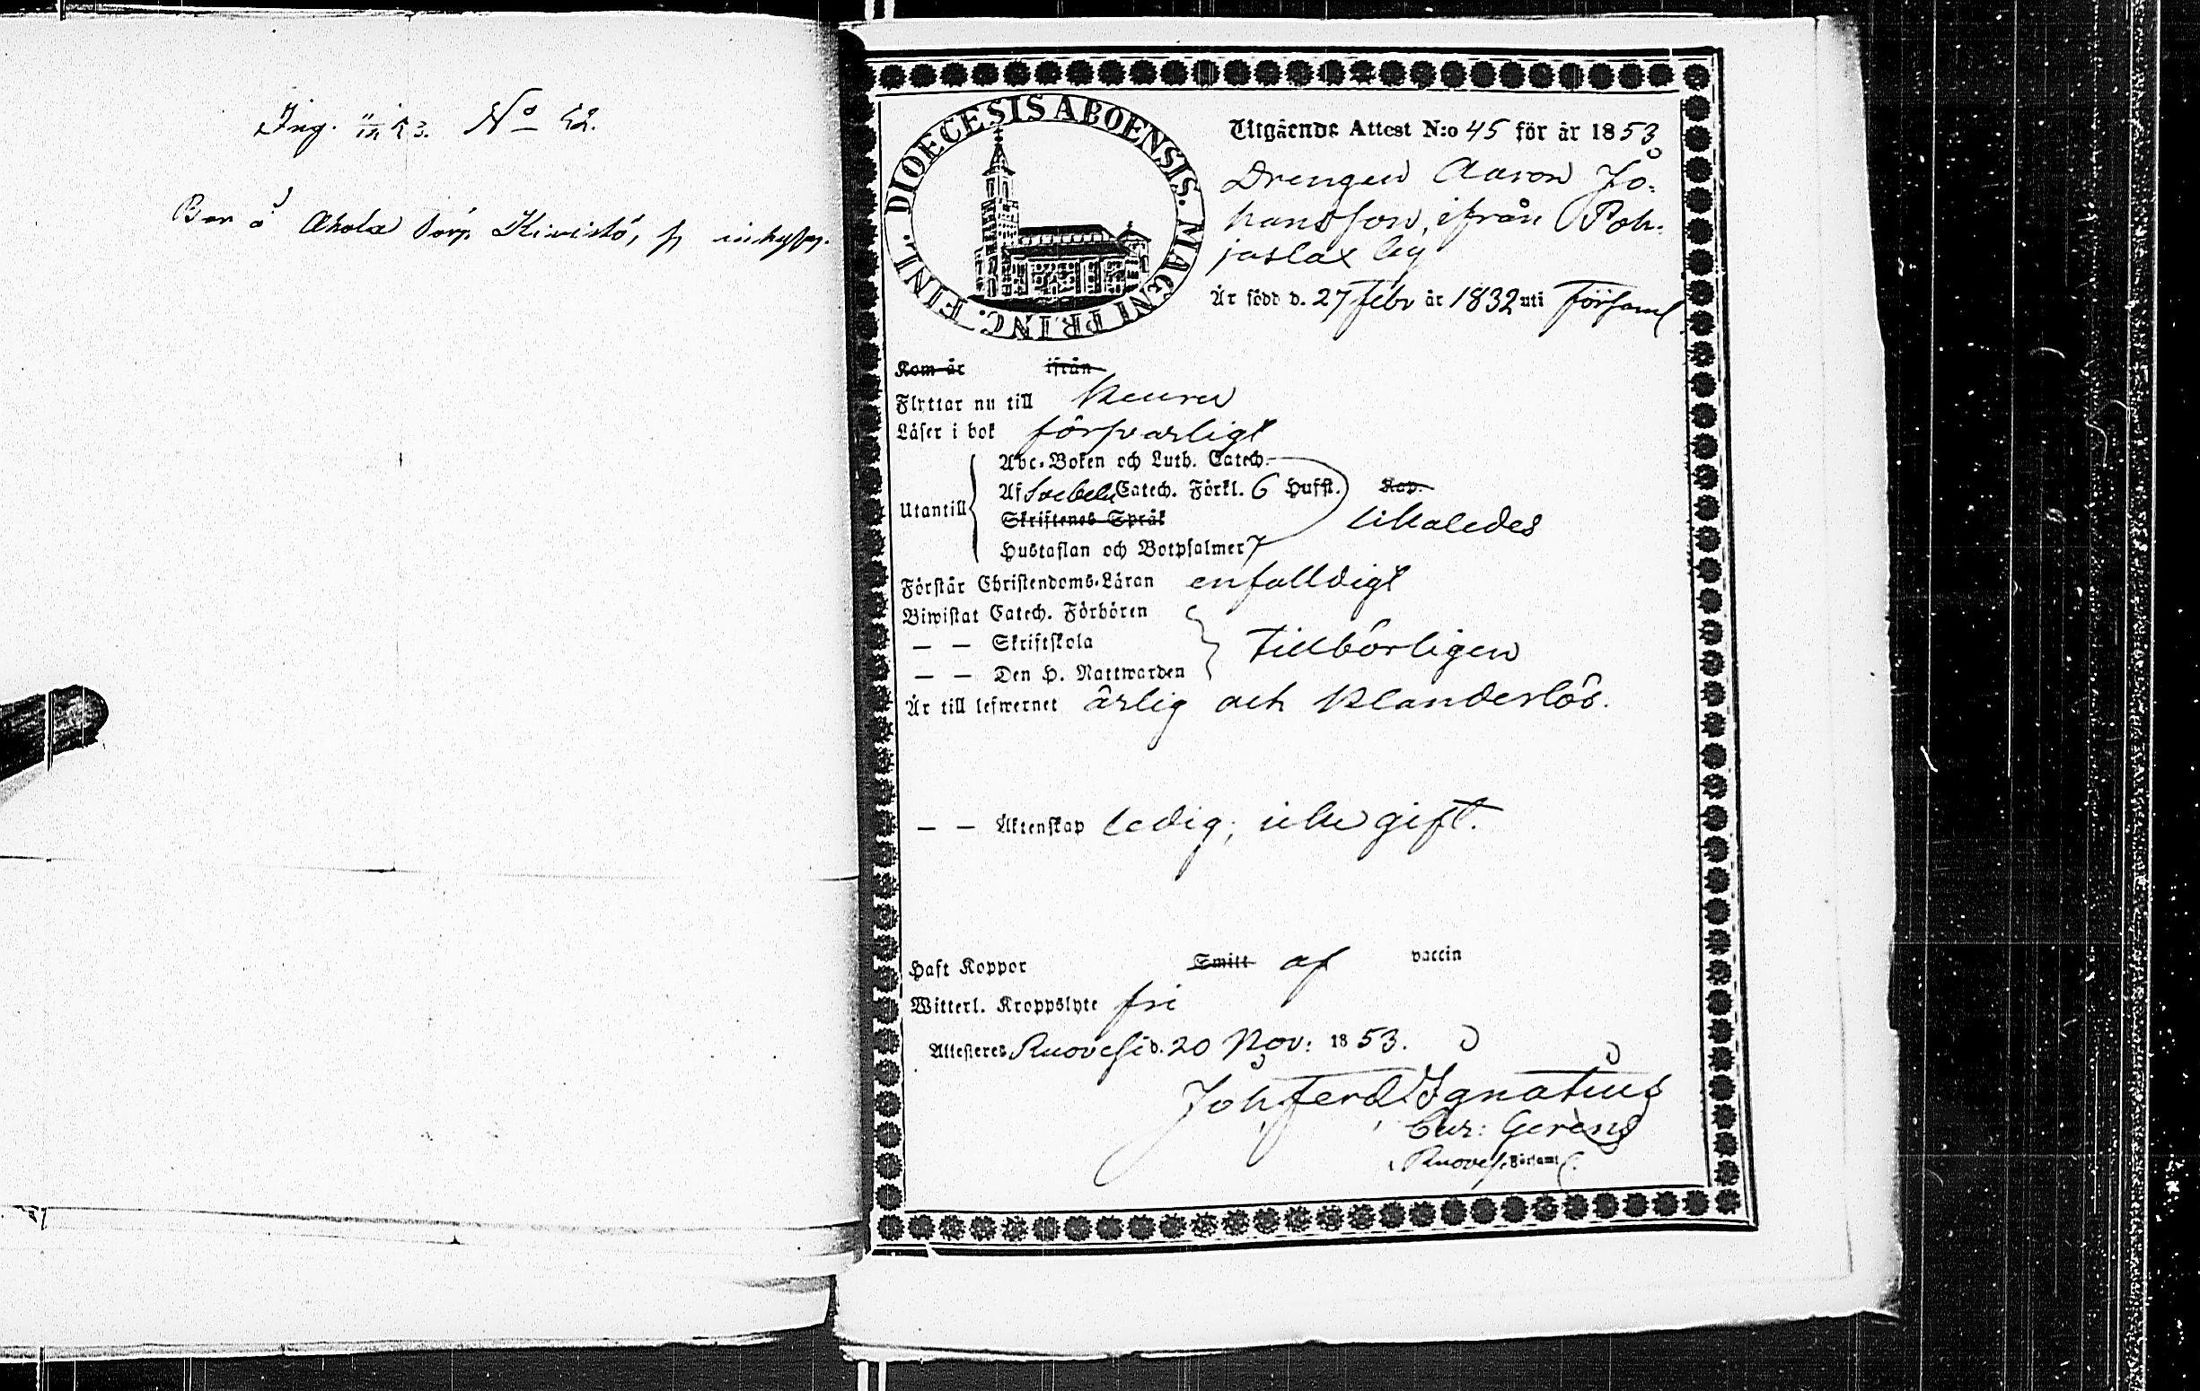 Ing. 11/12 53. No 52.
Bor å Ahola torp Kiwistö,
DIOECESIS ABOENSIS. MAGNI PRINC. FINL.
Utgående Attest N:o 45 för år 1853
Drengen Aaron Jo-
hansson, ifrån Poh-
jaslax by
Är född d. 27 Febr år 1832 uti Församl
Kom år ifrån
Flyttar nu till Keuru
Läser i bok försvarligt
Abc-Boken och Luth. Catech.
Utantill
Af Svebelii Catech. Förkl. 6 Hufst. Kap.
Skriftenes Språk
likaledes
Hustaflan och Botpsalmer 7
Förstår Christendoms-Läran enfalldigt
Biwistat Catech. Förhören
— — Skriftskola
tillbörligen
— — Den H. Nattwarden
Är till lefwernet ärlig och klanderlös.
— — Äktenskap ledig, icke gift.
Haft Koppor Smitt af vaccin
Witterl. Kroppslyte fri
Attesteras Ruovesi d. 20 Nov: 1853.
Joh. Ferd. Ignatius
Cur: Gerens
i Ruoves. Församl.